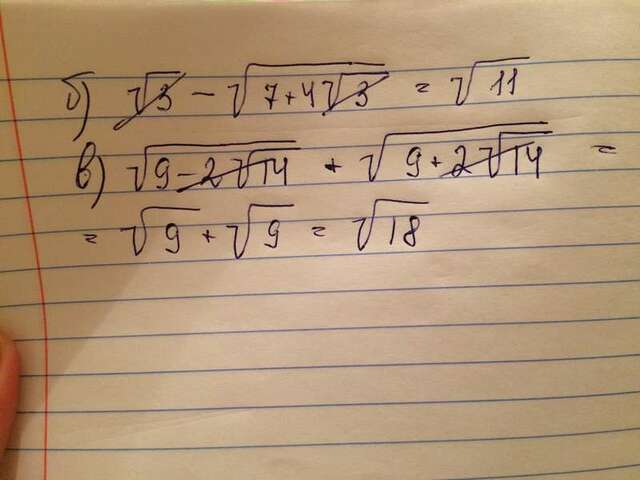 б) √3 − √(7+4√3) = √11
в) √(9−2√14) + √(9+2√14) =
= √9 + √9 = √18